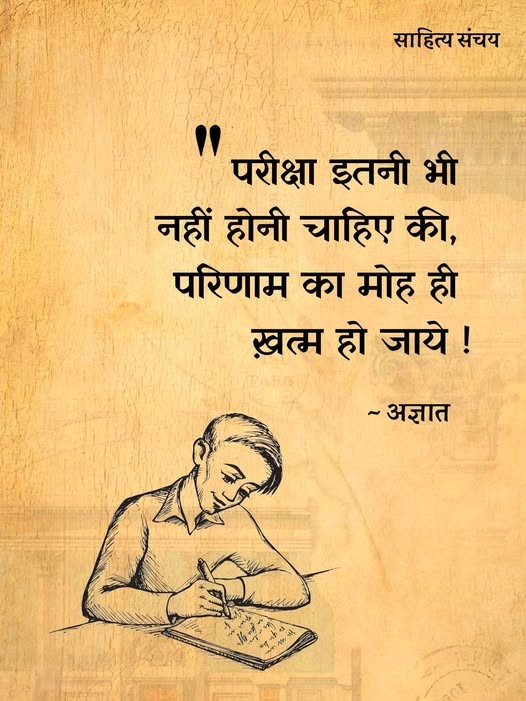 साहित्य संचय
" परीक्षा इतनी भी
नहीं होनी चाहिए की,
परिणाम का मोह ही
ख़त्म हो जाये !
~ अज्ञात